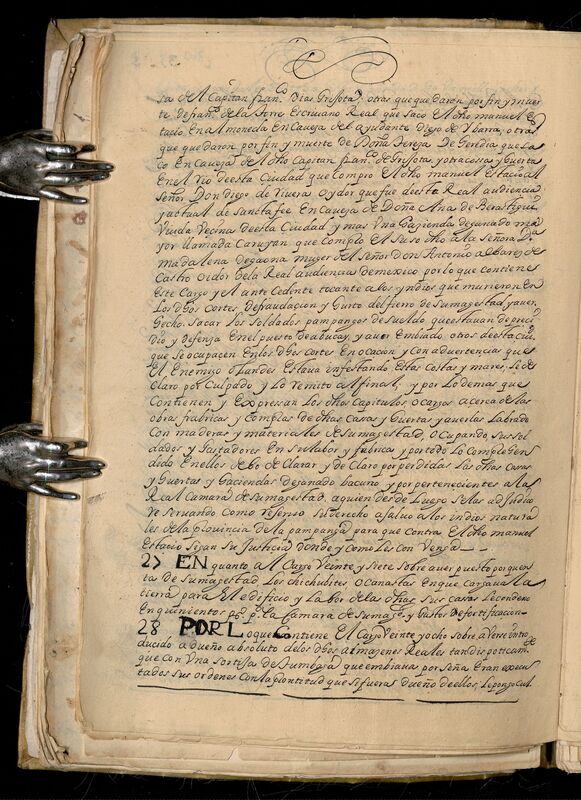 sa del Capitan fran.co Dias Grisota, otras que quedaron por fin y muer
te de fran.co de la Torre Escriuano Real que saco El dho manuel Es
tacio En almoneda En caueça del ayudante Diego de Ybarra, otras
que quedaron por fin y muerte de Doña Tereza De Geredia que sa
co En caueça de El dho Capitan fran.co de Grisota, y otra cosa y Guerta
En El Rio de esta Ciudad que compro El dho manuel Estacio al
Señor Don Diego de Vivera oydor que fue de esta Real audiencia
y actual de Santa fee En caueça de Doña Ana de Berastegui
Viuda Vecina de esta Ciudad y mas Vna Hazienda de ganado ma
yor llamada Caruyan que compro El suso dho a la señora D.a
madalena de gaona muger del Señor Don Antonio albares de
Castro oidor de la Real audiencia de mexico por lo que contiene
Este Cargo y El ante cedente tocante a los yndios que murieron En
los dhos cortes Defraudacion y Gurto del fierro de su magestad, y auer
Hecho Sacar los Soldados pampangos de sueldo, que estauan de preci
dio y defensa En el puerto de abucay, y auer Embiado otros de esta Ciu.d
que se ocupacen En los dhos cortes En ocacion y con aduertencias que
El Enemigo olandes Estaua infestando Estas costas y mares, le de
claro por Culpado y lo remito al final, y por lo demas que
Contienen y Expresan los dhos Capitulos, o cargos acerca de las
obras frabricas y Complas de dhas Casas y Guertas y auerlas Labrado
Con maderas y materiales de su magestad, ocupando sus sol
dados y Gastadores En su labor y fabrica y por todo lo Comprehen
dido En ellos debo de Clarar y de Claro por perdidas las dhas Casas
y Guertas y Haciendas de ganado bacuno y por pertenecientes a la
Real Camara de su magestad, a quien desde Luego se las adjudico
reseruando Como reseruo su derecho a saluo a los indios natura
les de la prouincia de la pampanga para que Contra El dho manuel
Estacio sigan su Justicia donde y Como les Con Venga
27 EN quanto al Cargo Veinte y siete sobre auer puesto por quen
ta de su magestad Los chichubites o canastas En que Carjaua la
tierra para El edificio y Labor de las dhas sus casas Le condeno
En quinientos p.s p.a la Camara de su mag.d y Gastos De fortificacion
28 POR Lo que Contiene El Cargo Veinte y ocho sobre averse intro
ducido a dueño absoluto de los dhos almazenes Reales tan dispoticam.te
que con Vna Sortija de Tumbaga que embiaua por Seña Eran execu
tados sus ordenes Con la prontitud que si fuera dueño de ellos, le pongo Cul